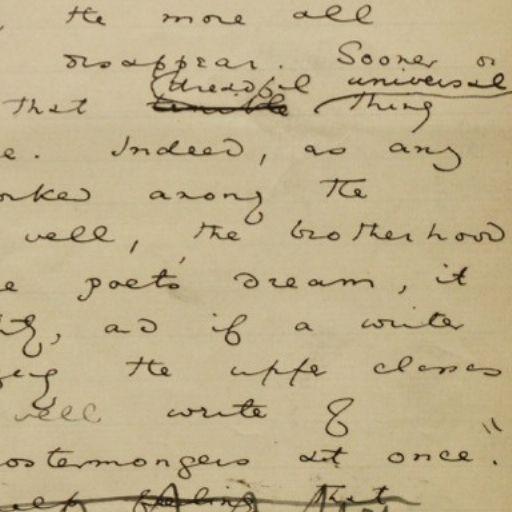 the more all
disappear. Sooner or
dreadful universal
that terrible thing
e. Indeed, as any
orked among the
well, the brotherhood
e poet's dream, it
ity, as if a writer
ying the upper classes
well write of
ostermongers at once."
feeling that